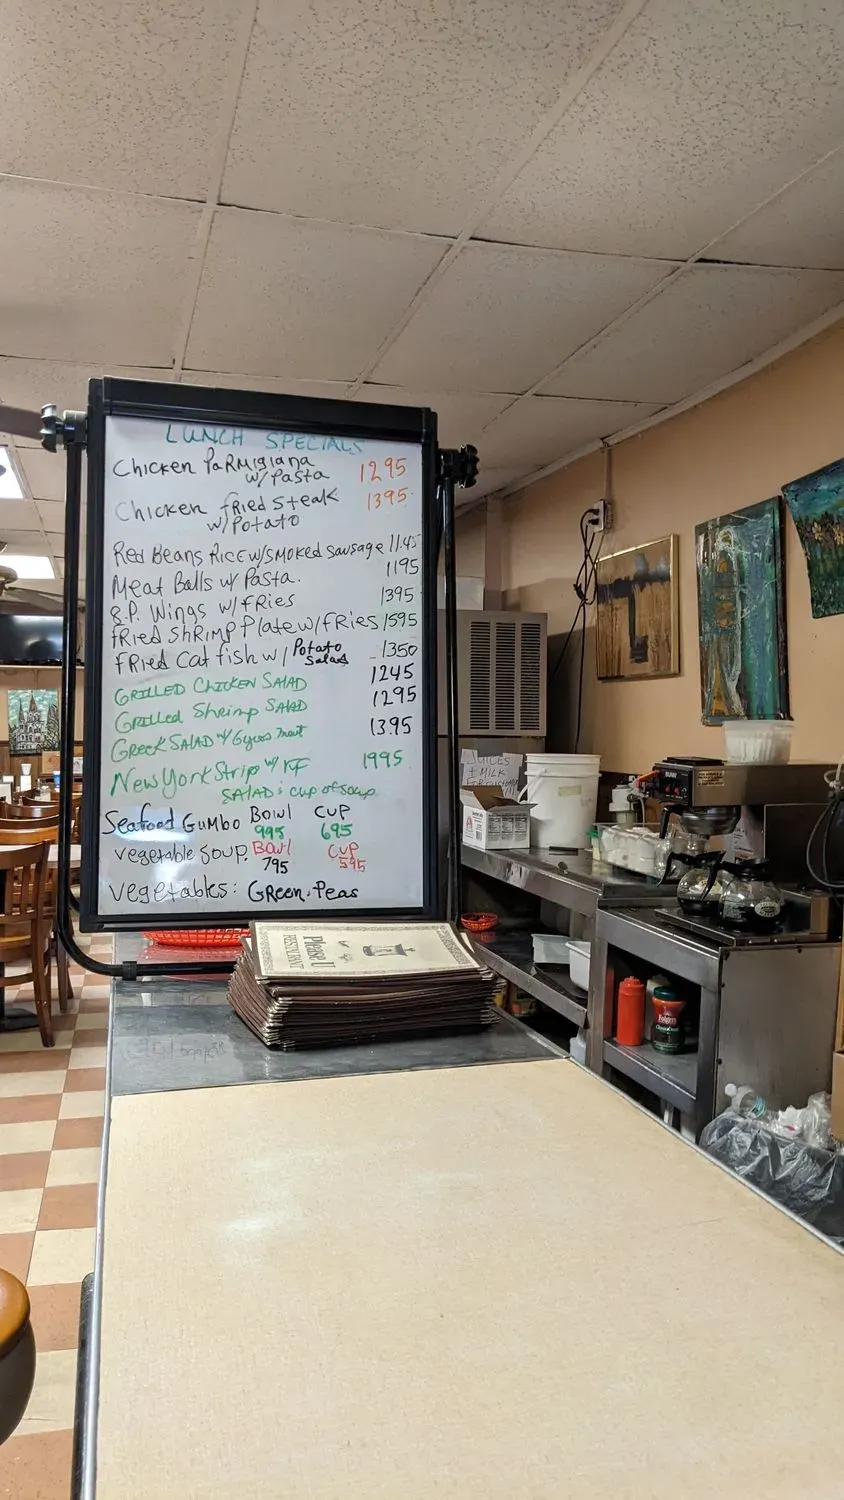 LUNCH SPECIALS
Chicken Parmigiana 1295
w/Pasta
Chicken fried Steak 1395
w/Potato
Red Beans Rice w/smoked sausage 1145
Meat Balls w/ Pasta. 1195
B.P. Wings w/fries 1395
fried shrimp Plate w/fries 1595
fried Catfish w/ Potato Salad 1350
GRILLED CHICKEN SALAD 1245
Grilled Shrimp SALAD 1295
Greek SALAD w/ Gyros meat 1395
New York Strip w/ FF 1995
SALAD & cup of soup
Seafood Gumbo Bowl Cup
995 695
vegetable Soup. Bowl Cup
795 595
Vegetables: Green Peas
Please U
RESTAURANT
JUICES
+ MILK
BUNN
Folgers